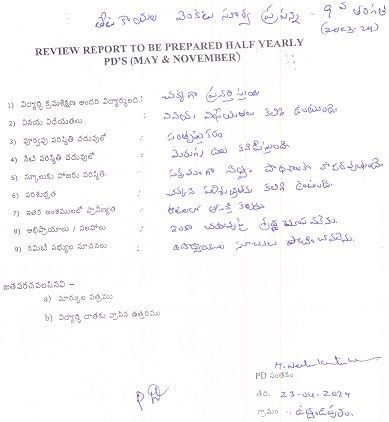 తేలకాయల వెంకట సూర్య ప్రసన్న - 9 వ తరగతి
(2023-24)
REVIEW REPORT TO BE PREPARED HALF YEARLY
PD'S (MAY & NOVEMBER)
1) విద్యార్థి క్రమశిక్షణ అందరి విద్యార్థులలో : చక్కగా ప్రవర్తిస్తాయి
2) వినయ విధేయతలు : వినయ విధేయతలు కలిగి ఉంటుంది.
3) పూర్వపు పరిస్థితి చదువులో : సంతృప్తికరం
4) నేటి పరిస్థితి చదువులో : మెరుగుదల కనిపిస్తుంది
5) స్కూలుకు హాజరు పరిస్థితి. : సక్రమంగా హాజరవుతుంది.
6) పరిశుభ్రత : చక్కని పరిశుభ్రతను కలిగి ఉంటుంది.
7) ఇతర అంశములలో ప్రావీణ్యత : ఆటలలో ఆసక్తి కలదు
8) అభిప్రాయాలు / సలహాలు : ఇంకా చదువుపై శ్రద్ధ చూపవలెను.
9) కమిటీ సభ్యుల సూచనలు : ఉపాధ్యాయుల సూచనలు పాటించవలెను.
జతపరచవలసినవి –
a) మార్కుల పత్రము
b) విద్యార్థి దాతకు వ్రాసిన ఉత్తరము
PD సంతకం
తేది. 23-04-2024
గ్రామం -